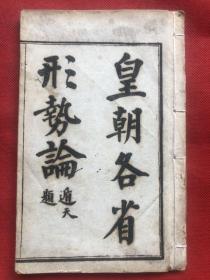 皇朝各省
形勢論
遁天題